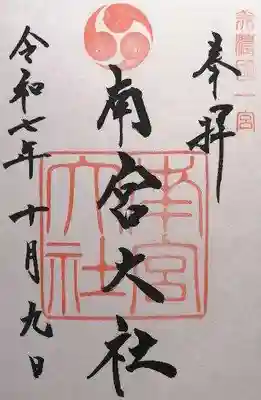 美濃國一宮
奉拝
南宮大社
南宮大社
令和七年十月九日